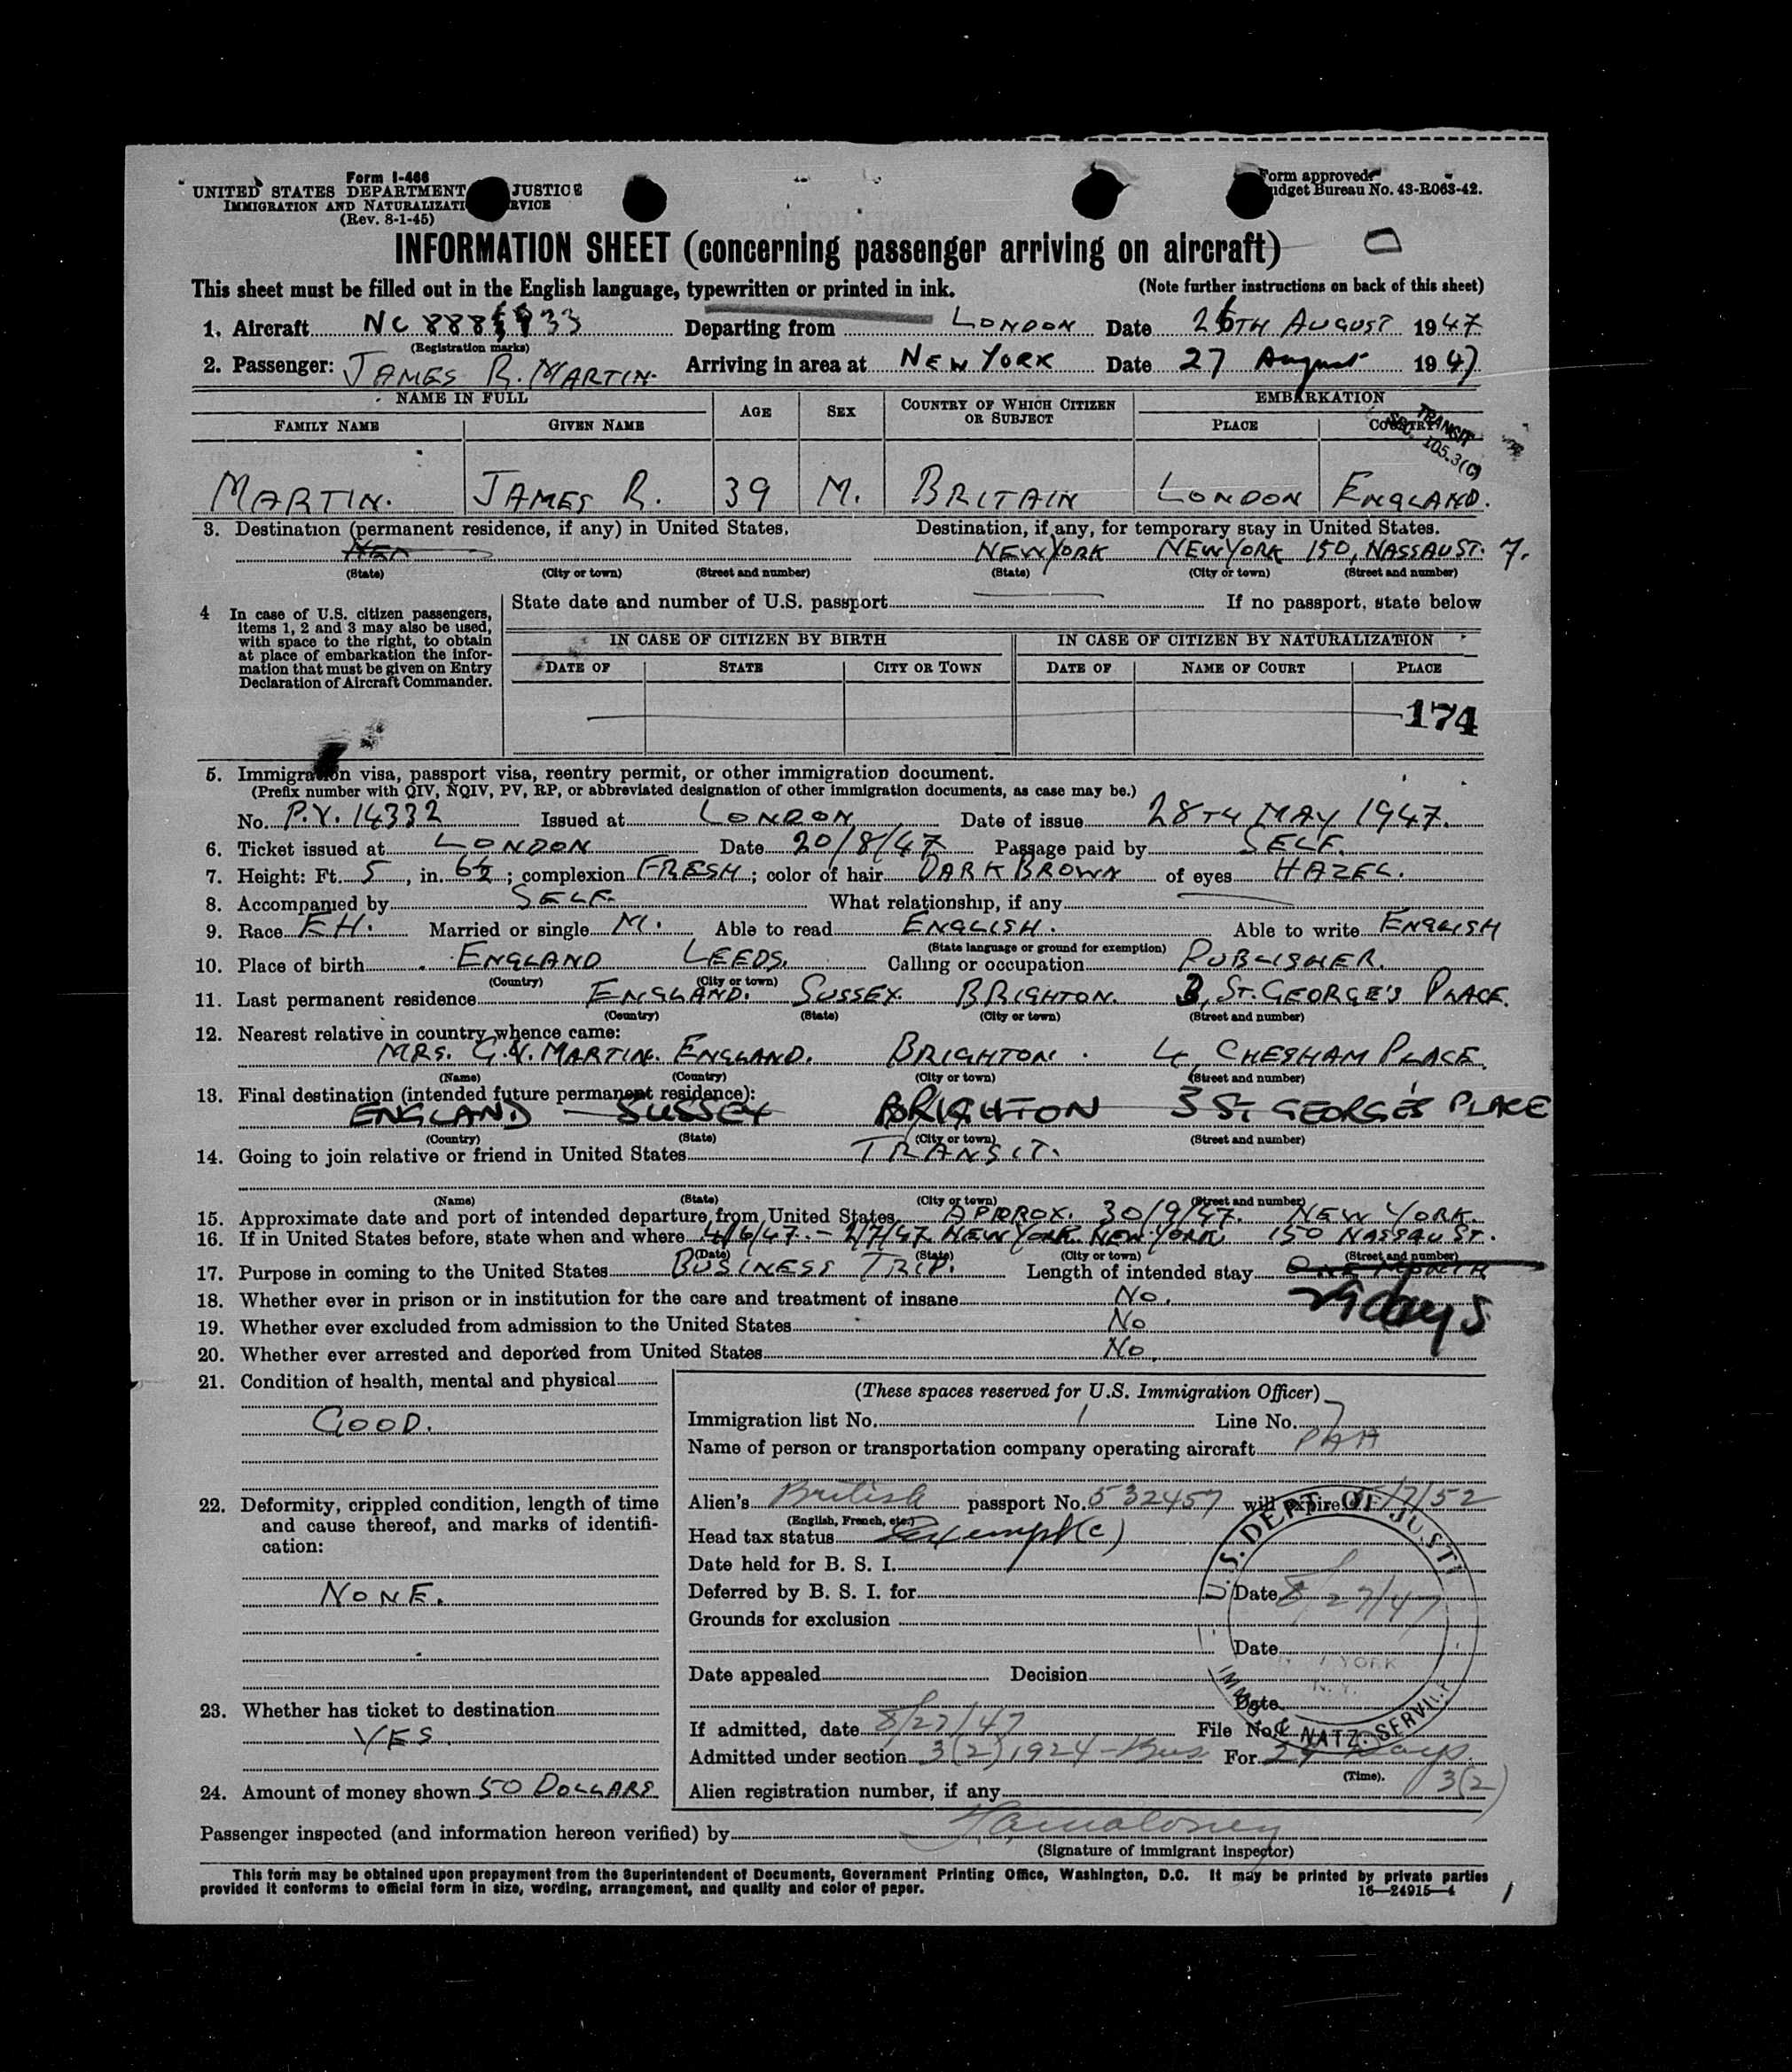 Form I-466
UNITED STATES DEPARTMENT JUSTICE
IMMIGRATION AND NATURALIZATI RVICE
(Rev. 8-1-45)
Form approved.
udget Bureau No. 43-R063-42.
INFORMATION SHEET (concerning passenger arriving on aircraft)
This sheet must be filled out in the English language, typewritten or printed in ink. (Note further instructions on back of this sheet)
1. Aircraft NC Departing from LONDON Date 26TH AUGUST 1947
(Registration marks)
2. Passenger: JAMES R. MARTIN. Arriving in area at NEW YORK Date 27 August 1947
NAME IN FULL AGE SEX COUNTRY OF WHICH CITIZEN OR SUBJECT EMBARKATION
FAMILY NAME GIVEN NAME PLACE COUNTRY
TRANSIT
SEC. 105.3(C)
MARTIN. JAMES R. 39 M. BRITAIN LONDON ENGLAND.
3. Destination (permanent residence, if any) in United States. Destination, if any, for temporary stay in United States.
NEW YORK NEW YORK 150, NASSAU ST. 7.
(State) (City or town) (Street and number) (State) (City or town) (Street and number)
4 In case of U.S. citizen passengers, items 1, 2 and 3 may also be used, with space to the right, to obtain at place of embarkation the information that must be given on Entry Declaration of Aircraft Commander.
State date and number of U.S. passport If no passport, state below
IN CASE OF CITIZEN BY BIRTH IN CASE OF CITIZEN BY NATURALIZATION
DATE OF STATE CITY OR TOWN DATE OF NAME OF COURT PLACE
174
5. Immigration visa, passport visa, reentry permit, or other immigration document.
(Prefix number with QIV, NQIV, PV, RP, or abbreviated designation of other immigration documents, as case may be.)
No. P.V. 14332 Issued at LONDON Date of issue 28TH MAY 1947.
6. Ticket issued at LONDON Date 20/8/47 Passage paid by SELF.
7. Height: Ft. 5, in. 6½; complexion FRESH; color of hair DARK BROWN of eyes HAZEL.
8. Accompanied by SELF. What relationship, if any
9. Race EH. Married or single M. Able to read ENGLISH. Able to write ENGLISH
(State language or ground for exemption)
10. Place of birth ENGLAND LEEDS. Calling or occupation PUBLISHER.
(Country) (City or town)
11. Last permanent residence ENGLAND. SUSSEX. BRIGHTON. 3, ST. GEORGE'S PLACE.
(Country) (State) (City or town) (Street and number)
12. Nearest relative in country whence came:
MRS. G.V. MARTIN. ENGLAND. BRIGHTON. 4, CHESHAM PLACE.
(Name) (Country) (City or town) (Street and number)
13. Final destination (intended future permanent residence):
ENGLAND SUSSEX BRIGHTON 3 ST GEORGE'S PLACE
(Country) (State) (City or town) (Street and number)
14. Going to join relative or friend in United States TRANSIT.
(Name) (State) (City or town) (Street and number)
15. Approximate date and port of intended departure from United States APPROX. 30/9/47. NEW YORK.
16. If in United States before, state when and where 4/6/47. - 2/7/47 NEW YORK NEW YORK 150 NASSAU ST.
(Date) (State) (City or town) (Street and number)
17. Purpose in coming to the United States BUSINESS TRIP. Length of intended stay ONE MONTH
29 days
18. Whether ever in prison or in institution for the care and treatment of insane No.
19. Whether ever excluded from admission to the United States No
20. Whether ever arrested and deported from United States No.
21. Condition of health, mental and physical
GOOD.
22. Deformity, crippled condition, length of time and cause thereof, and marks of identification:
NONE.
23. Whether has ticket to destination
YES.
24. Amount of money shown 50 DOLLARS
(These spaces reserved for U.S. Immigration Officer)
Immigration list No. 1 Line No. 7
Name of person or transportation company operating aircraft PAA
Alien's British passport No. 532457 will expire /7/52
(English, French, etc.)
Head tax status Exempt (c)
Date held for B. S. I.
Deferred by B. S. I. for Date 8/27/47
Grounds for exclusion
Date
Date appealed Decision
Date
If admitted, date 8/27/47 File No.
Admitted under section 3(2) 1924 - Bus For 29 Days
(Time).
3(2)
Alien registration number, if any
U.S. DEPT. OF JUSTI
YORK
N.Y.
IMM & NATZ. SERVI
Passenger inspected (and information hereon verified) by
(Signature of immigrant inspector)
This form may be obtained upon prepayment from the Superintendent of Documents, Government Printing Office, Washington, D.C. It may be printed by private parties
provided it conforms to official form in size, wording, arrangement, and quality and color of paper. 16—24915-4
1